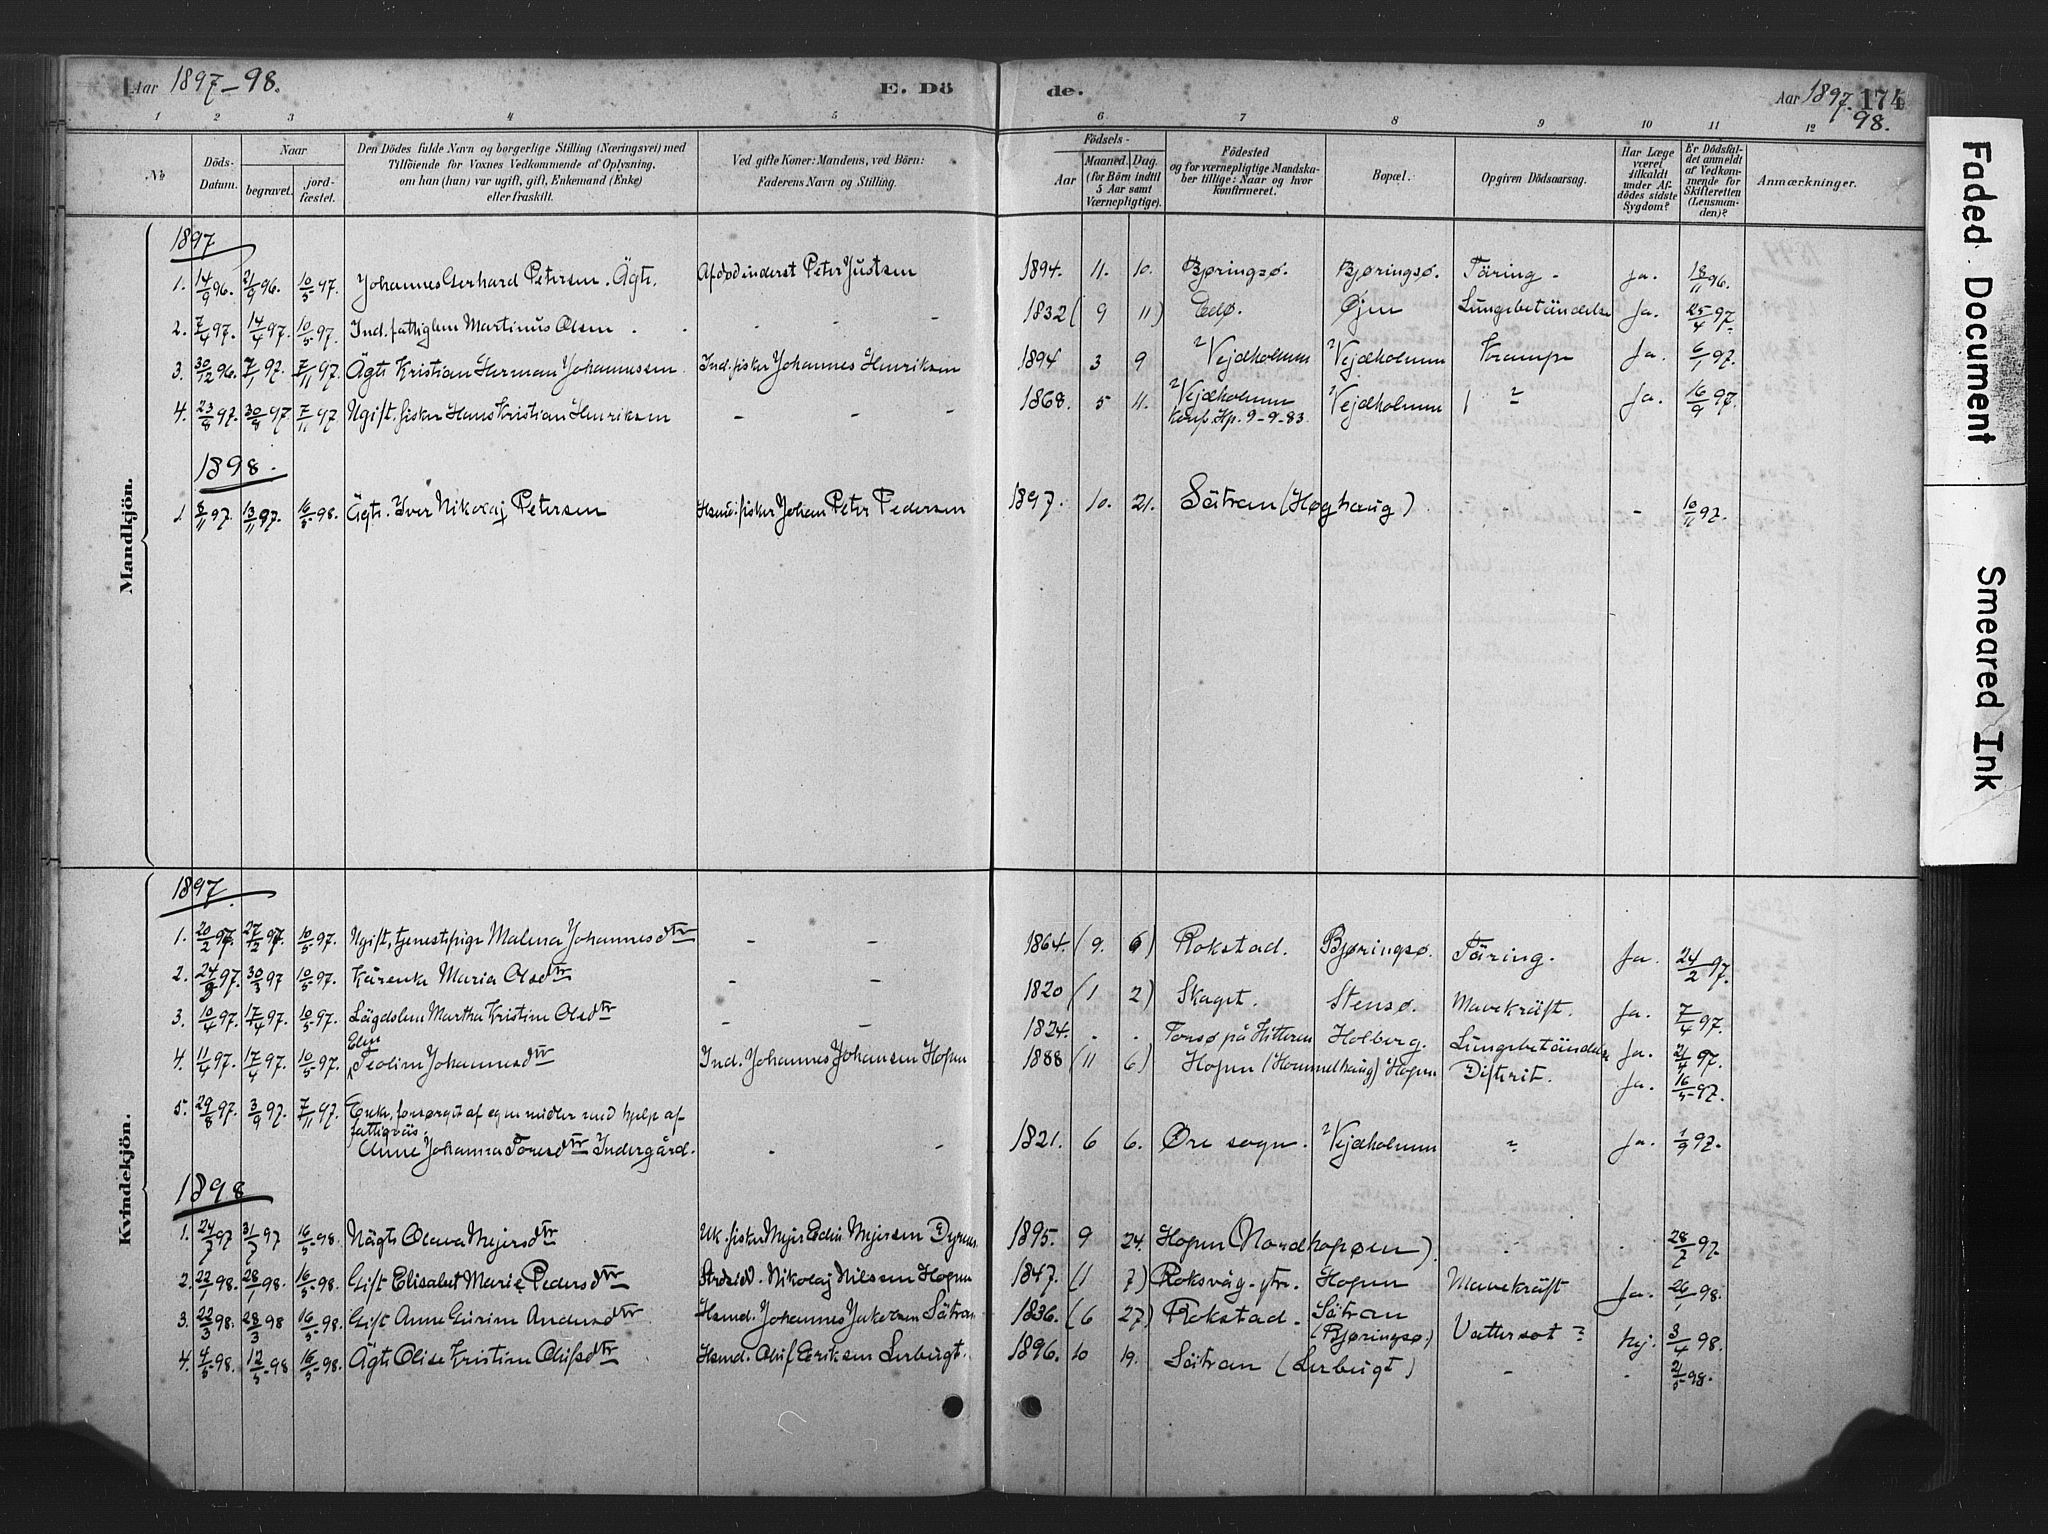 Aar 1897-98.
E. Dö
de.
Aar 1897-98. 174
1 2 3 4 5 6 7 8 9 10 11 12
№
Döds-Datum.
Naar
begravet.
jordfæstet.
Den Dödes fulde Navn og borgerlige Stilling (Næringsvei) med
Tilföiende for Voxnes Vedkommende af Oplysning.
om han (hun) var ugift, gift, Enkemand (Enke)
eller fraskilt.
Ved gifte Koner: Mandens, ved Börn:
Faderens Navn og Stilling.
Födsels-
Aar
Maaned. Dag.
(for Börn indtil
5 Aar samt
Værnepligtige).
Födested
og for værnepligtige Mandskaber tillige: Naar og hvor
konfirmeret.
Bopæl.
Opgiven Dödsaarsag.
Har Læge
været
tilkaldt
under Afdödes sidste
Sygdom?
Er Dödsfaldet anmeldt
af Vedkommende for
Skifteretten
(Lensmanden)?
Anmærkninger.
Mandkjön.
1897
1. 14/9 96. 21/9 96. 10/5 97. Johannes Gerhard Petersen. Ägt. Afdöd inderst Peter Justsen 1894. 11. 10. Bjøringsø. Bjøringsø. Täring - Ja. 18/11 96.
2. 7/4 97. 14/4 97. 10/5 97. Ind. fattiglem Martinus Olsen. - - - 1832 (9 11) Edø. Øjen Lungebetändelse Ja. 25/4 97.
3. 30/12 96. 7/1 97. 7/11 97. Ägt. Kristian Herman Johannessen. Ind. fisker Johannes Henriksen 1894 3 9 Vejdholmen Vejdholmen Krampe Ja. 6/1 97.
4. 23/8 97. 30/8 97 7/11 97. Ugift. fisker Hans Kristian Henriksen - - - 1868. 5 11. Vejdholmen Konf. Hp. 9-9-83. Vejdholmen ? Ja. 16/9 97.
1898.
1 8/11 97. 13/11 97. 16/5 98. Ägt. Iver Nikolaj Petersen Husmd. fisker Johan Peter Pedersen 1897. 10. 21. Sätran (Høghaug) - - 10/11 97.
Kvindekjön.
1897
1. 20/2 97. 27/2 97. 10/5 97. Ugift, tjenestpige Malena Johannesdtr - - 1864. (9. 6) Rokstad. Bjøringsø. Täring. Ja. 24/2 97.
2. 24/3 97. 30/3 97 10/5 97. Kårenka Maria Olsdtr - - 1820 (1 2) Skaget. Stensø. Mavekräft. Ja. 7/4 97.
3. 10/4 97. 17/4 97. 10/5 97. Lägdslem Martha Kristine Olsdtr - - 1824. - - på Hitteren Holberg. Lungebetändelse Ja. 21/4 97.
4. 11/4 97. 17/4 97. 10/5 97. Elen Teoline Johannesdtr Ind. Johannes Johansen Hopen 1888 (11 6) Hopen (Hommelhaug) Hopen Difterit. Ja. 16/5 97.
5. 29/8 97. 3/9 97. 7/11 97. Enke, forsørget af egne midler med hjelp af
fattigväs.
Anne Johanna Toresdtr Indergård. - - 1821. 6 6. Øre sogn. Vejdholmen ? Ja. 1/9 97.
1898
1. 24/7 97 31/7 97 16/5 98. Uägt. Olava Mejersdtr Uk. fisker Mejer Edin Mejersen Dyrnes. 1895. 9 24. Hopen (Nordhopøen). - - 28/7 97.
2. 22/1 98. 28/1 98. 16/5 98. Gift Elisabet Marie Pedersdtr Strdsidd. Nikolaj Nilsen Hopen 1847. (1 7) Roksvåg. ytr. Hopen Mavekräft Ja. 26/1 98.
3. 22/3 98. 28/3 98 16/5 98. Gift Anne Gurine Andersdtr Husmd. Johannes Jakobsen Sätran 1836. (6 27) Rokstad. Sätran (Bjøringsø.) Vattersot ? Nej. 3/4 98.
4. 4/5 98. 12/5 98 16/5 98. Ägt. Olise Kristine Olufsdtr Husmd. Oluf Eriksen Lerbugt. 1896. 10 19. Sätran (Lerbugt) - - 2/5 98.
Faded Document
Smeared Ink